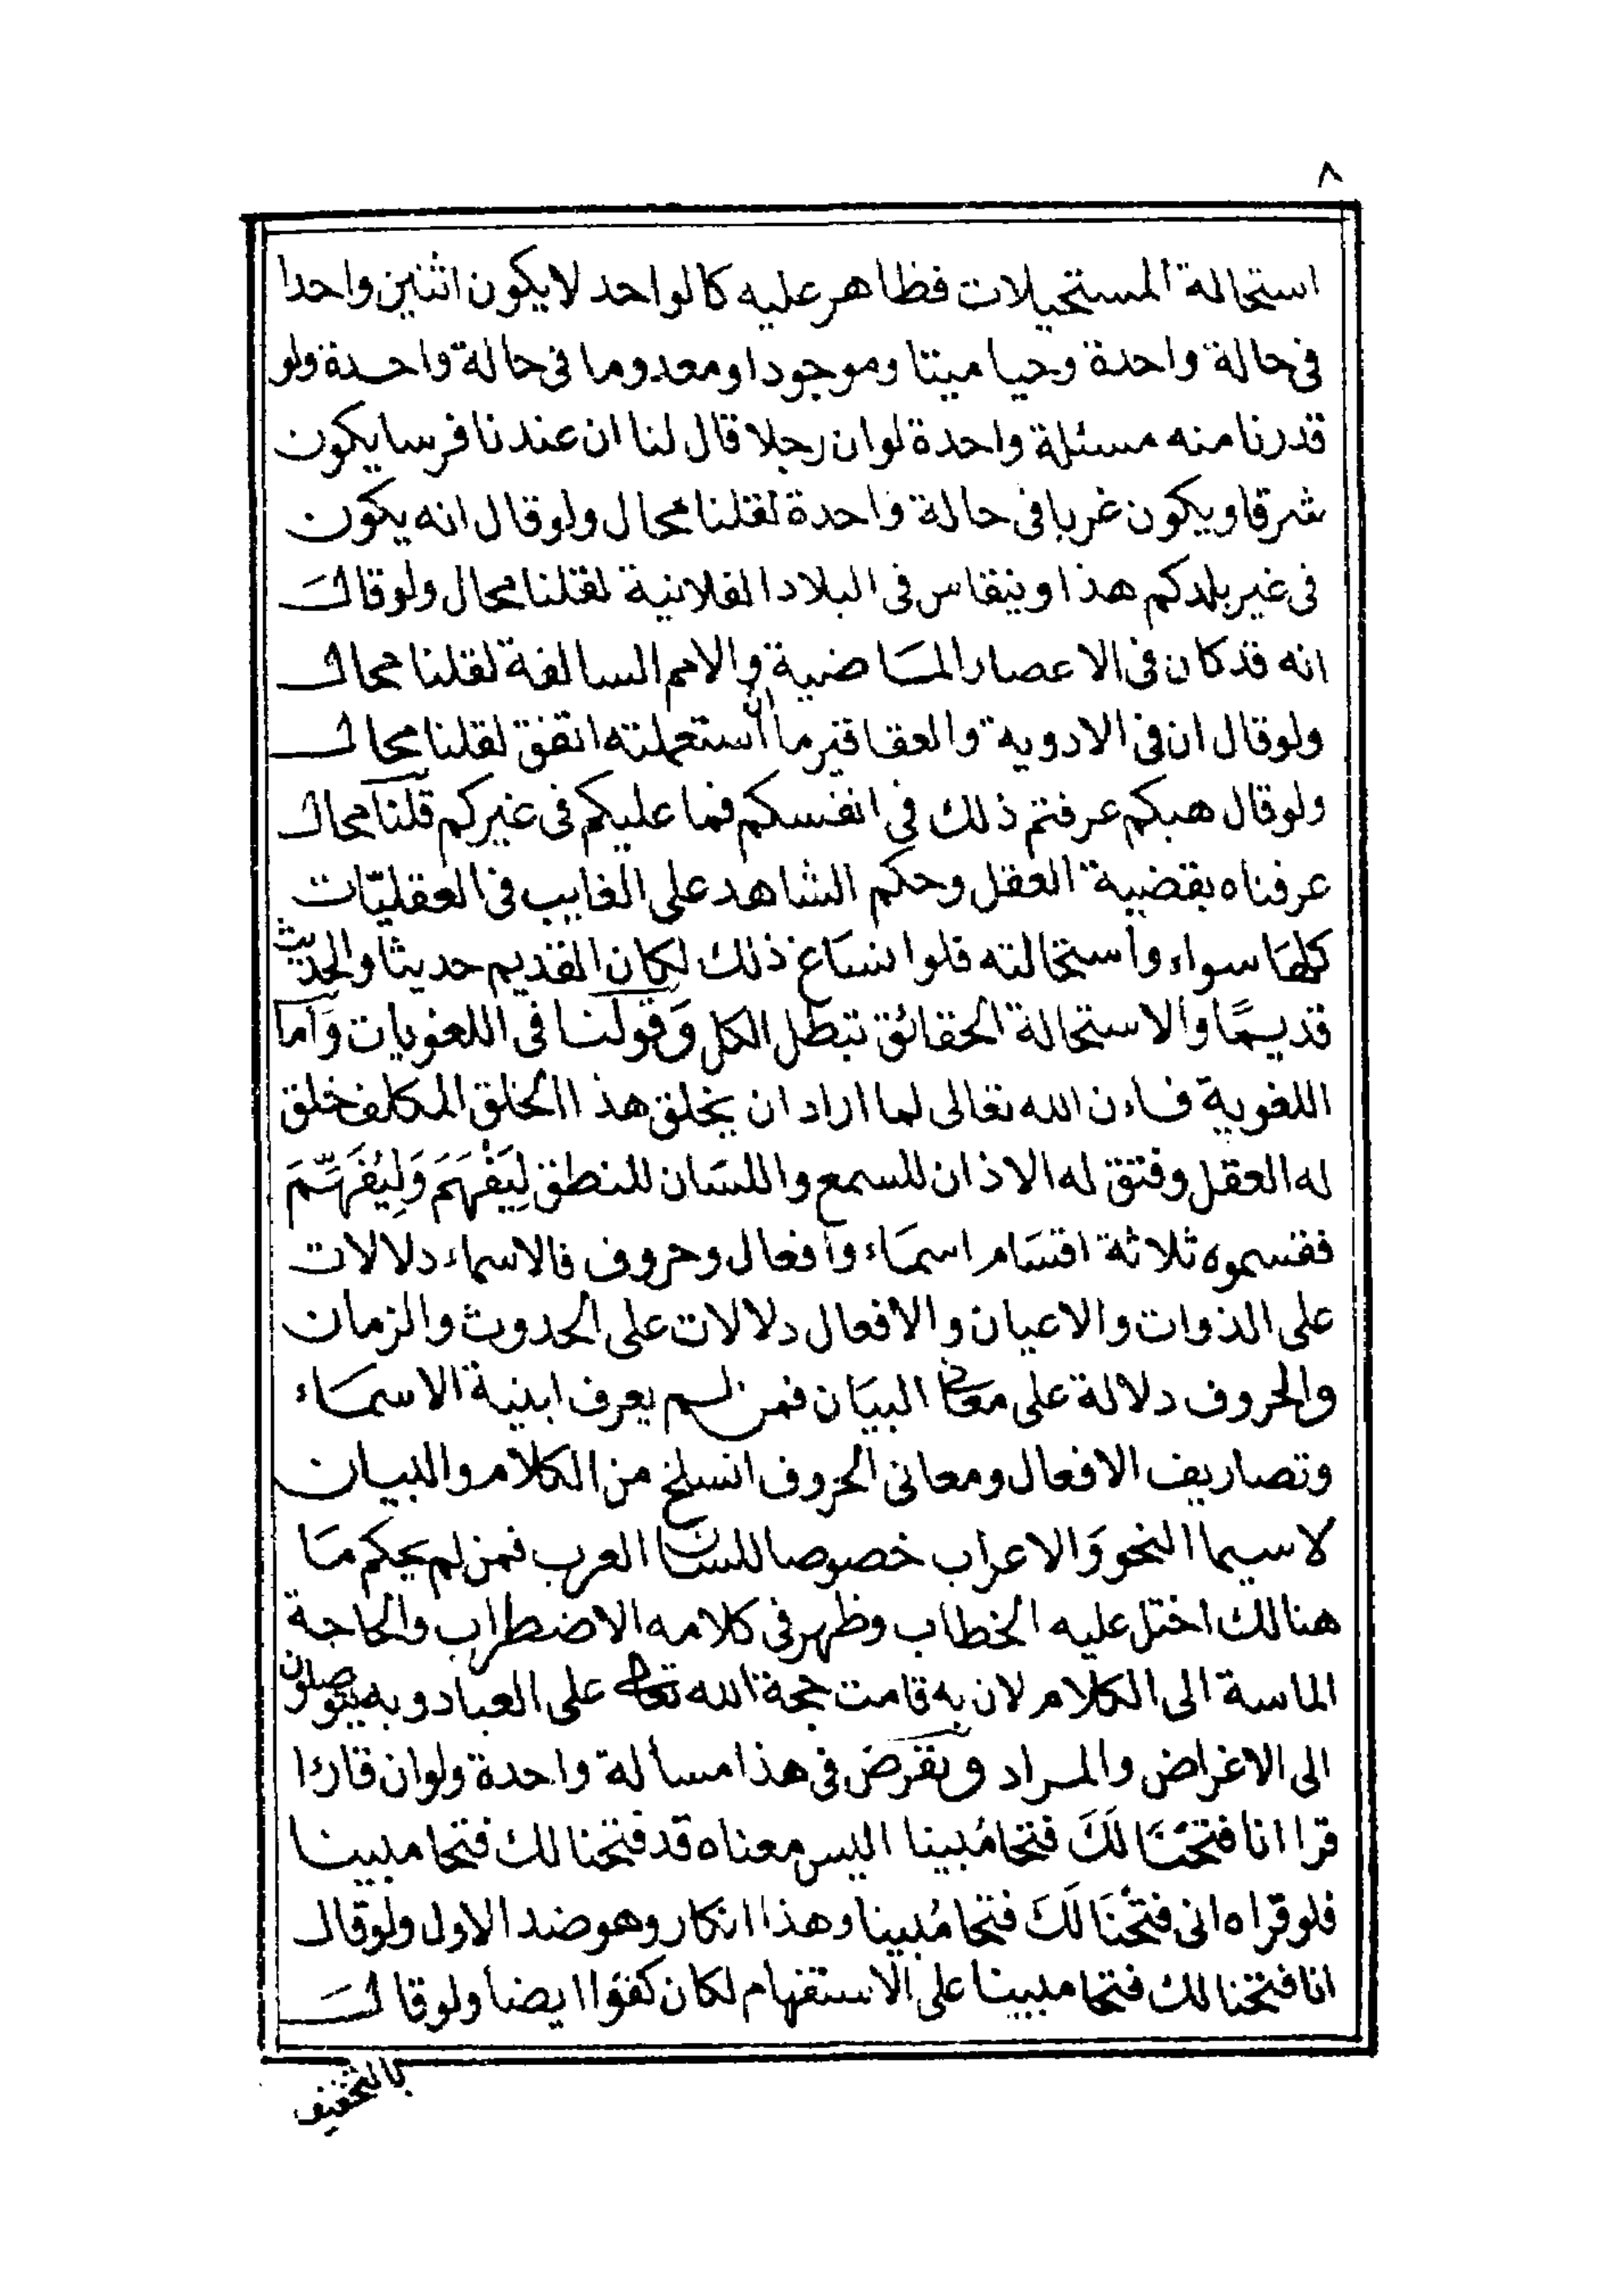 ٨
استحالة المستحيلات فظاهر عليه كالواحد لا يكون اثنين واحدا
فى حالة واحدة وحيا ميتا وموجودا ومعدوما فى حالة واحدة ولو
قدرنا منه مسئلة واحدة لو ان رجلا قال لنا ان عندنا فرسا يكون
شرقا ويكون غربا فى حالة واحدة لقلنا محال ولو قال انه يكون
فى غير بلدكم هذا وينقاس فى البلاد الفلانية لقلنا محال ولو قال
انه قد كان فى الاعصار المَاضية والامم السالفة لقلنا محال
ولو قال ان فى الادوية والعقاقير ما ان استعملته اتفق لقلنا محال
ولو قال هبكم عرفتم ذلك فى انفسكم فما عليكم فى غيركم قلنا محال
عرفناه بقضية العقل وحكم الشاهد على الغايب فى العقليّات
كلهَا سواء واستحالته فلو انسَاغ ذلك لكان القديم حديثا والحديث
قديمًا والاستحالة الحقائق تبطل الكل وَقولنا فى اللغويات وَاما
اللغوية فاءن الله تعالى لما اراد ان يخلق هذا الخلق المكلف خلق
له العقل وفتق له الاذان للسمع واللسَان للنطق لِيَفْهَمَ وَلِيُفَهِّمَ
فقسموه ثلاثة اقسَام اسمَاء وافعال وحروف فالاسماء دلالات
على الذوات والاعيان والافعال دلالات على الحدوث والزمان
والحروف دلالة على معانى البيَان فمن لم يعرف ابنية الاسمَاء
وتصاريف الافعال ومعانى الحروف انسلخ من الكلام والبيان
لا سيما النحو وَالاعراب خصوصا للسان العرب فمن لم يحكم مَا
هنالك اختل عليه الخطاب وظهر فى كلامه الاضطراب والحاجة
الماسة الى الكلام لان به قامت حجة الله تعالى على العباد وبه يتوصلون
الى الاغراض والمراد ونفرض فى هذا مسألة واحدة ولو ان قارئا
قرا انا فتحْنَا لَكَ فتحا مُبينا اليس معناه قد فتحنا لك فتحا مبينا
فلو قراه انى فتحْنَا لَكَ فتحا مُبينا وهذا انكار وهو ضد الاول ولو قال
انا فتحنا لك فتحا مبينا على الاستفهام لكان كفوا ايضا ولو قال
بالتخفيف